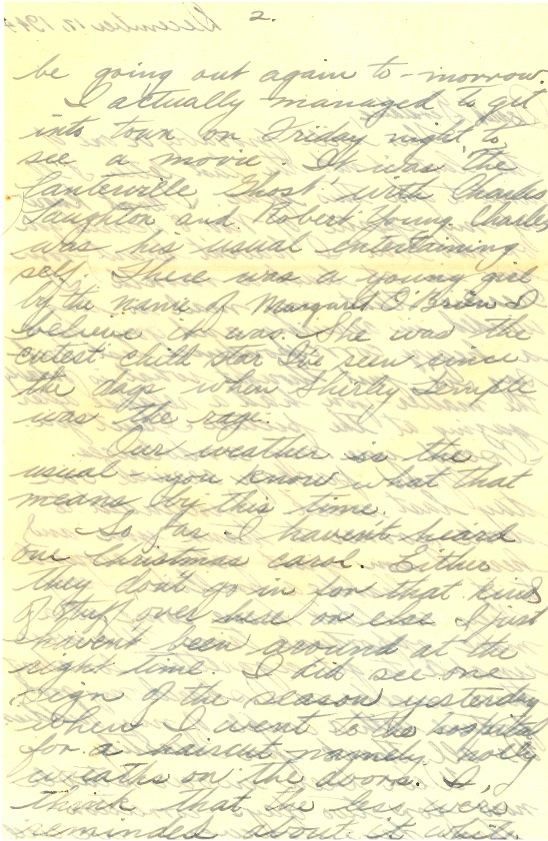 2.
be going out again to-morrow.
I actually managed to get
into town on Friday night to
see a movie. It was "the
Canterville Ghost" with Charles
Laughton and Robert Young. Charles
was his usual entertaining
self. There was a young girl
by the name of Margaret O'Brien I
believe it was. She was the
cutest child star I've seen since
the days when Shirley Temple
was the rage.
Our weather is the
usual - you know what that
means by this time.
So far I haven't heard
one Christmas carol. Either
they don't go in for that kind
of stuff over here or else I just
haven't been around at the
right time. I did see one
sign of the season yesterday
when I went to the hospital
for a haircut namely holly
wreaths on the doors. I
think that the less we're
reminded about it while